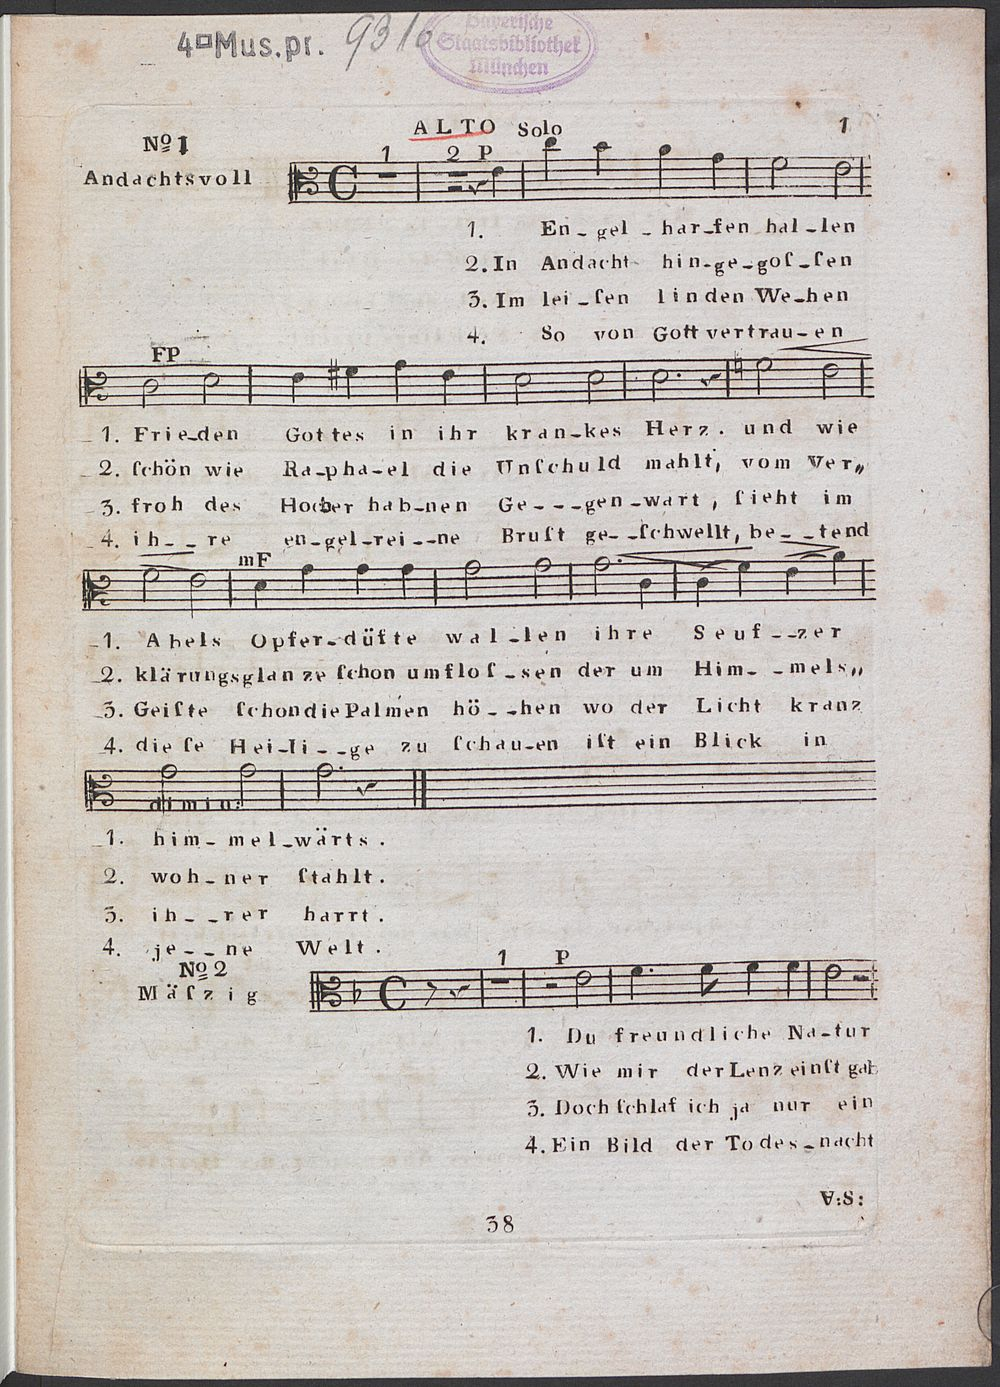 4□Mus.pr. 9316
Bayerische
Staatsbibliothek
München
ALTO Solo 1
Nọ 1
Andachtsvoll
1 2 P
1. En-gel-har-fen hal-len
2. In Andacht hin-ge-goſ-ſen
3. Im lei-ſen linden We-hen
4. So von Gott vertrau-en
FP
1. Frie-den Gottes in ihr kran-kes Herz. und wie
2. ſchön wie Ra-pha-el die Unſchuld mahlt, vom Ver„
3. froh des Hocher hab-nen Ge---gen-wart, ſieht im
4. ih--re en-gel-rei--ne Bruſt ge--ſchwellt, be--tend
mF
1. Abels Opfer-düfte wal-len ihre Seuf--zer
2. klärungsglanze ſchon umfloſ-sen der um Him--mels„
3. Geiſte ſchon die Palmen hö--hen wo der Licht kranz
4. dieſe Hei-li--ge zu ſchau-en iſt ein Blick in
dimin:
1. him-mel-wärts.
2. woh-ner ſtahlt.
3. ih--rer harrt.
4. je--ne Welt.
Nọ 2
Mäſzig
1 P
1. Du freundliche Na-tur
2. Wie mir der Lenz einſt gab
3. Doch ſchlaf ich ja nur ein
4. Ein Bild der Todes-nacht
V:S:
38